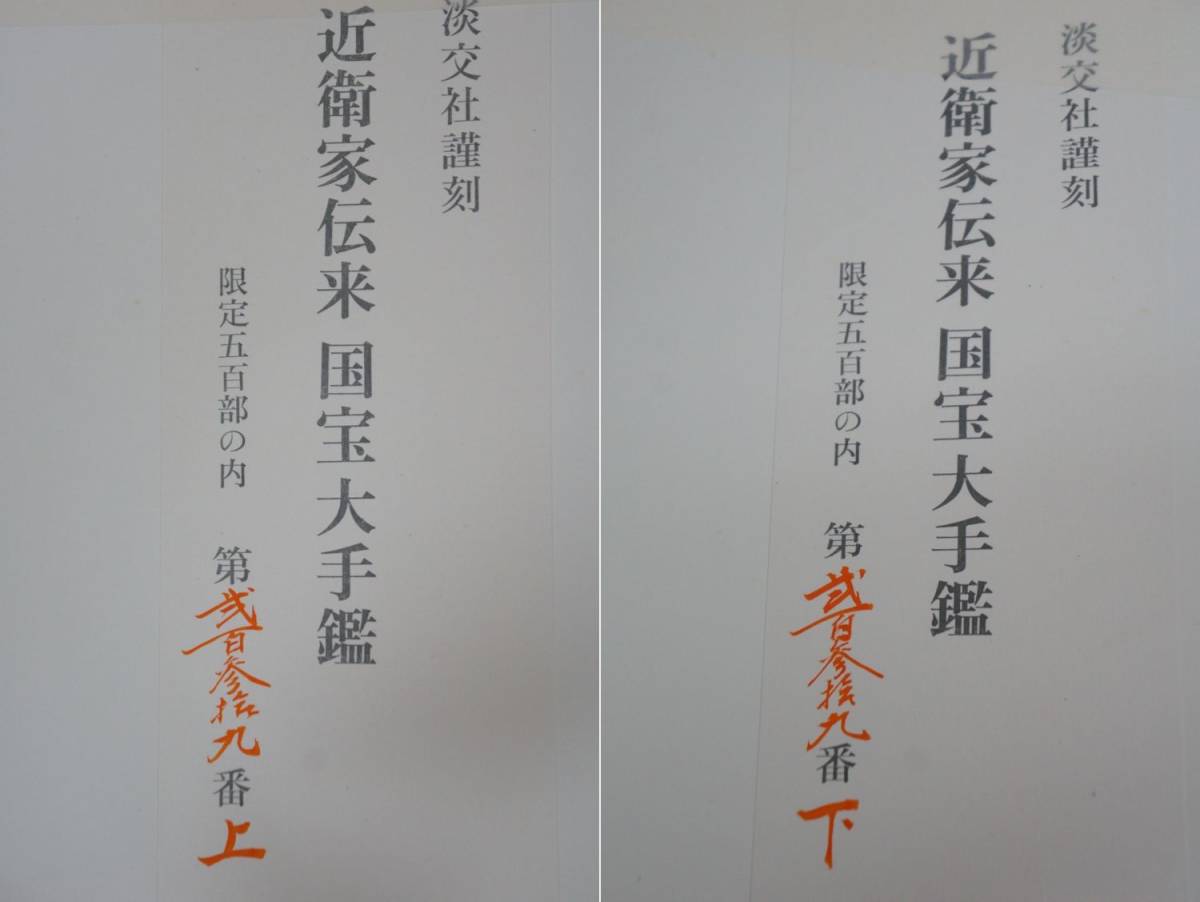 淡交社謹刻
近衛家伝来 国宝大手鑑
限定五百部の内 第弐百参拾九番 上
淡交社謹刻
近衛家伝来 国宝大手鑑
限定五百部の内 第弐百参拾九番 下